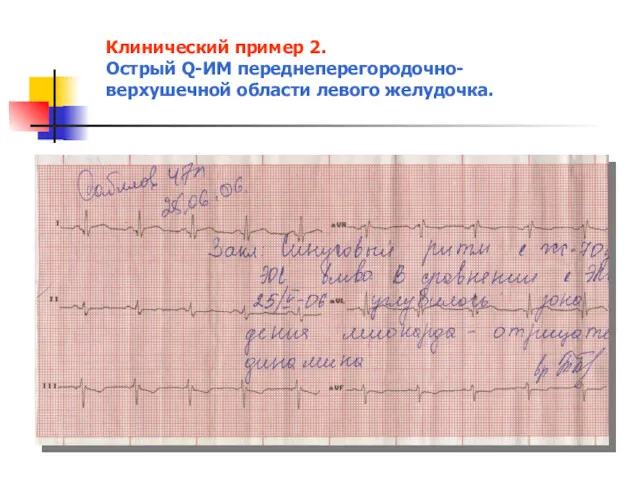 Клинический пример 2.
Острый Q-ИМ переднеперегородочно-
верхушечной области левого желудочка.
47л
28.06.06.
I
aVR
Закл: Синусовый ритм с
ЭОС влево В сравнении с ЭК
II
25/V-06
aVL
углубилась зона
дения миокарда - отрицате
динамика
вр
III
aVF